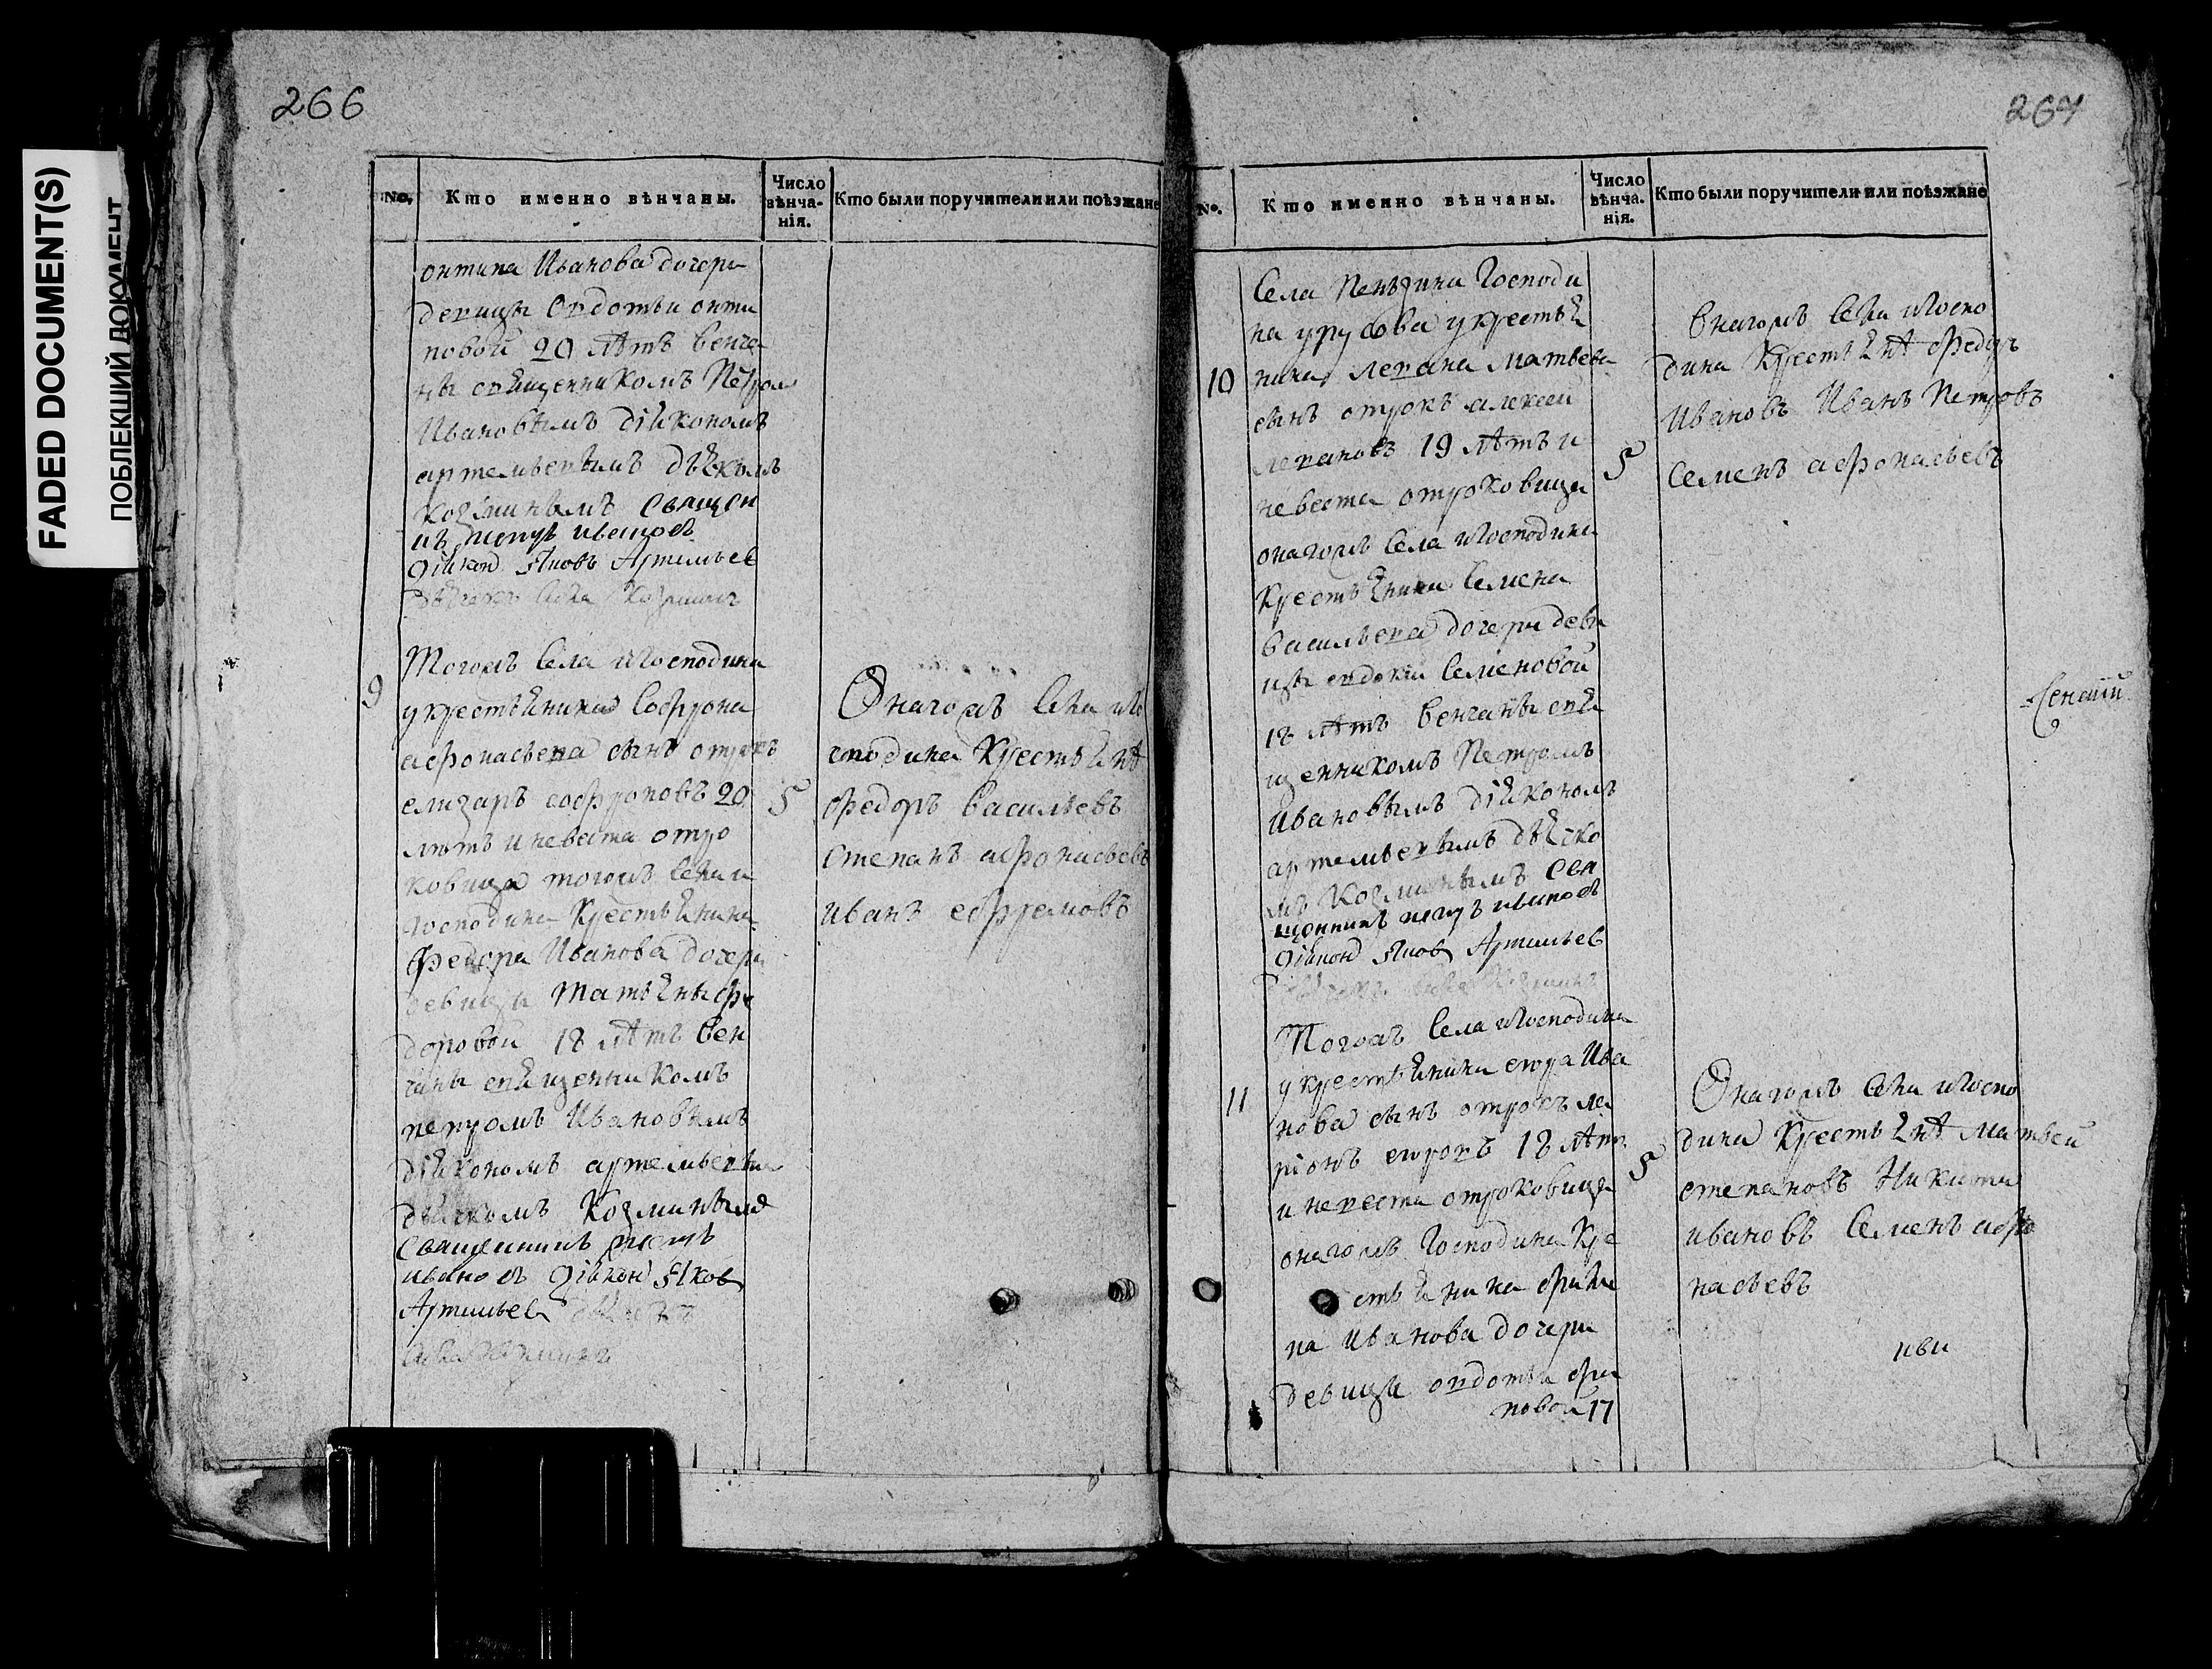 FADED DOCUMENT(S)
ПОБЛЕКШИЙ ДОКУМЕНТ
266
No.
Кто именно вѣнчаны.
Число вѣнча-нія.
Кто были поручители или поѣзжане
онтипа Иванова дочери
девицы овдотьи онти
повой 20 лѣтъ венча
ны священникомъ Петром
Ивановымъ діякономъ
артемьевымъ дьячкомъ
козминымъ Священ
икъ петръ ивановъ
діякон Яковъ Артемьев
9
Тогожъ села игосподина
укрестьянина Софрона
афонасьева сынъ отрокъ
елизаръ софроновъ 20
лѣтъ иневеста отро
ковица тогожъ села и
господина крестьянина
Федора Иванова дочери
девицы татьяны фе
доровой 18 лѣтъ вен
чаны священникомъ
петромъ Ивановымъ
діякономъ артемьевым
дьячкомъ Козминымъ
Священникъ петръ
ивановъ діякон Яков
Артемьев
5
Онагожъ села иго
сподина крестьянѣ
федоръ васильевъ
степанъ афонасьевъ
иванъ ефремовъ
267
No.
Кто именно вѣнчаны.
Число вѣнча-нія.
Кто были поручители или поѣзжане
10
Села Пензина Господи
на урусова укрестья
нина левана матвева
сынъ отрокъ алексей
левановъ 19 лѣтъ и
невеста отроковица
онагожъ села игосподина
крестьянина семена
васильева дочери деви
цы евдокии семеновой
18 лѣтъ венчаны свя
щенникомъ Петромъ
Ивановымъ діякономъ
артемьевымъ дьячко
мъ козминымъ Свя
щенникъ петръ ивановъ
діякон Яков Артемьев
5
Онагожъ села игоспо
дина крестьянѣ федоръ
Ивановъ Иванъ Петровъ
семенъ афонасьевъ
11
Тогожъ села игосподина
укрестьянина егора Ива
нова сынъ отрокъ ла
ріонъ егоровъ 18 лѣтъ
и невеста отроковица
онагожъ Господина кре
стьянина фили
па Иванова дочери
девицы овдотьи фили
повой 17
5
Онагожъ села игоспо
дина крестьянѣ матвей
степановъ Никита
ивановъ семенъ афо
насьевъ
иви